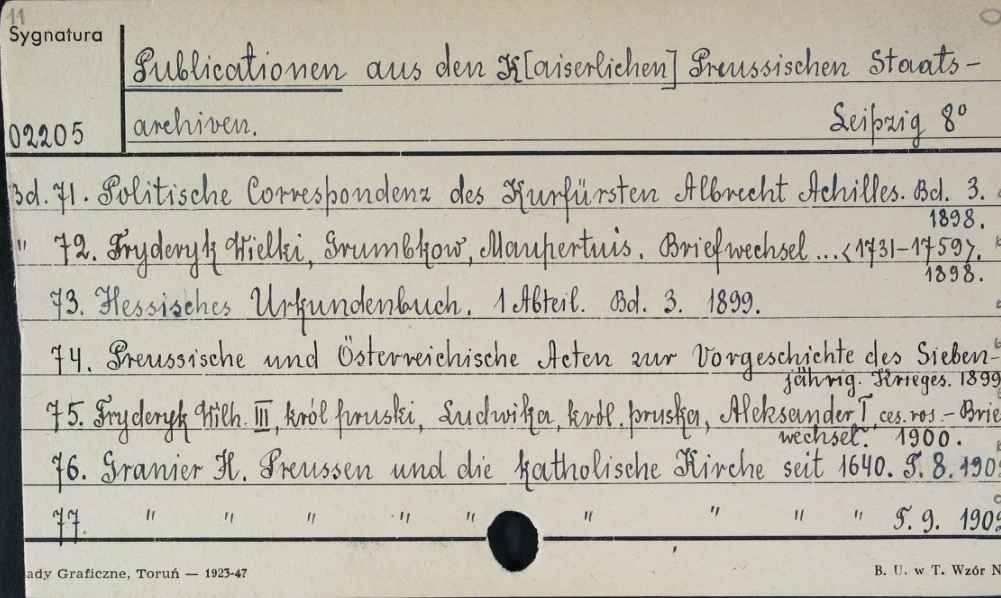 11
Sygnatura
Publicationen aus den K[aiserlichen] Preussischen Staats-
02205 archiven. Leipzig 8°
Bd. 71. Politische Correspondenz des Kurfürsten Albrecht Achilles. Bd. 3.
1898.
" 72. Fryderyk Wielki, Grumbkow, Maupertuis. Briefwechsel ...<1731-1759>.
1898.
73. Hessisches Urkundenbuch. 1 Abteil. Bd. 3. 1899.
74. Preussische und Österreichische Acten zur Vorgeschichte des Sieben-
jährig. Krieges. 1899
75. Fryderyk Wilh. III, król pruski, Ludwika, król. pruska, Aleksander I, ces. ros. - Brie
wechsel. 1900.
76. Granier H. Preussen und die katholische Kirche seit 1640. T. 8. 190
77. " " " " " " " " " T. 9. 190
ady Graficzne, Toruń — 1923-47
B. U. w T. Wzór N